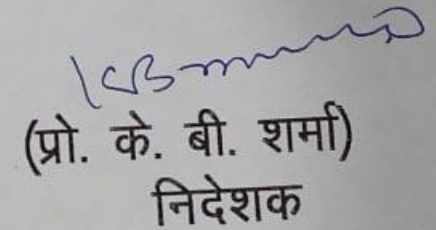 (प्रो. के. बी. शर्मा)
निदेशक